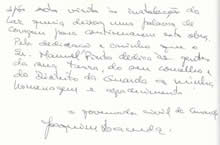 Após esta visita às instalações do
Lar queria deixar uma palavra de
coragem para continuarem esta obra.
Pela dedicação e carinho que o
Sr. Manuel Pinto dedica às gentes
da sua terra, do seu concelho e
do Distrito da Guarda a minha
homenagem e agradecimento
O governador civil da Guarda
Joaquim Lacerda